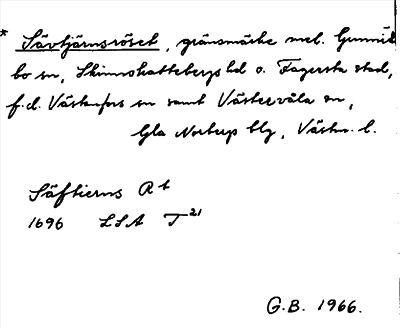 * Sävtjärnsröset, gränsmärke mel. Gunnil
bo sn, Skinnskattebergs hd o. Fagersta stad,
f.d. Västanfors sn samt Västervåla sn,
Gla Norbergs blg, Västm. l.
Säftierns Rt
1696 LSA T 21
G.B. 1966.